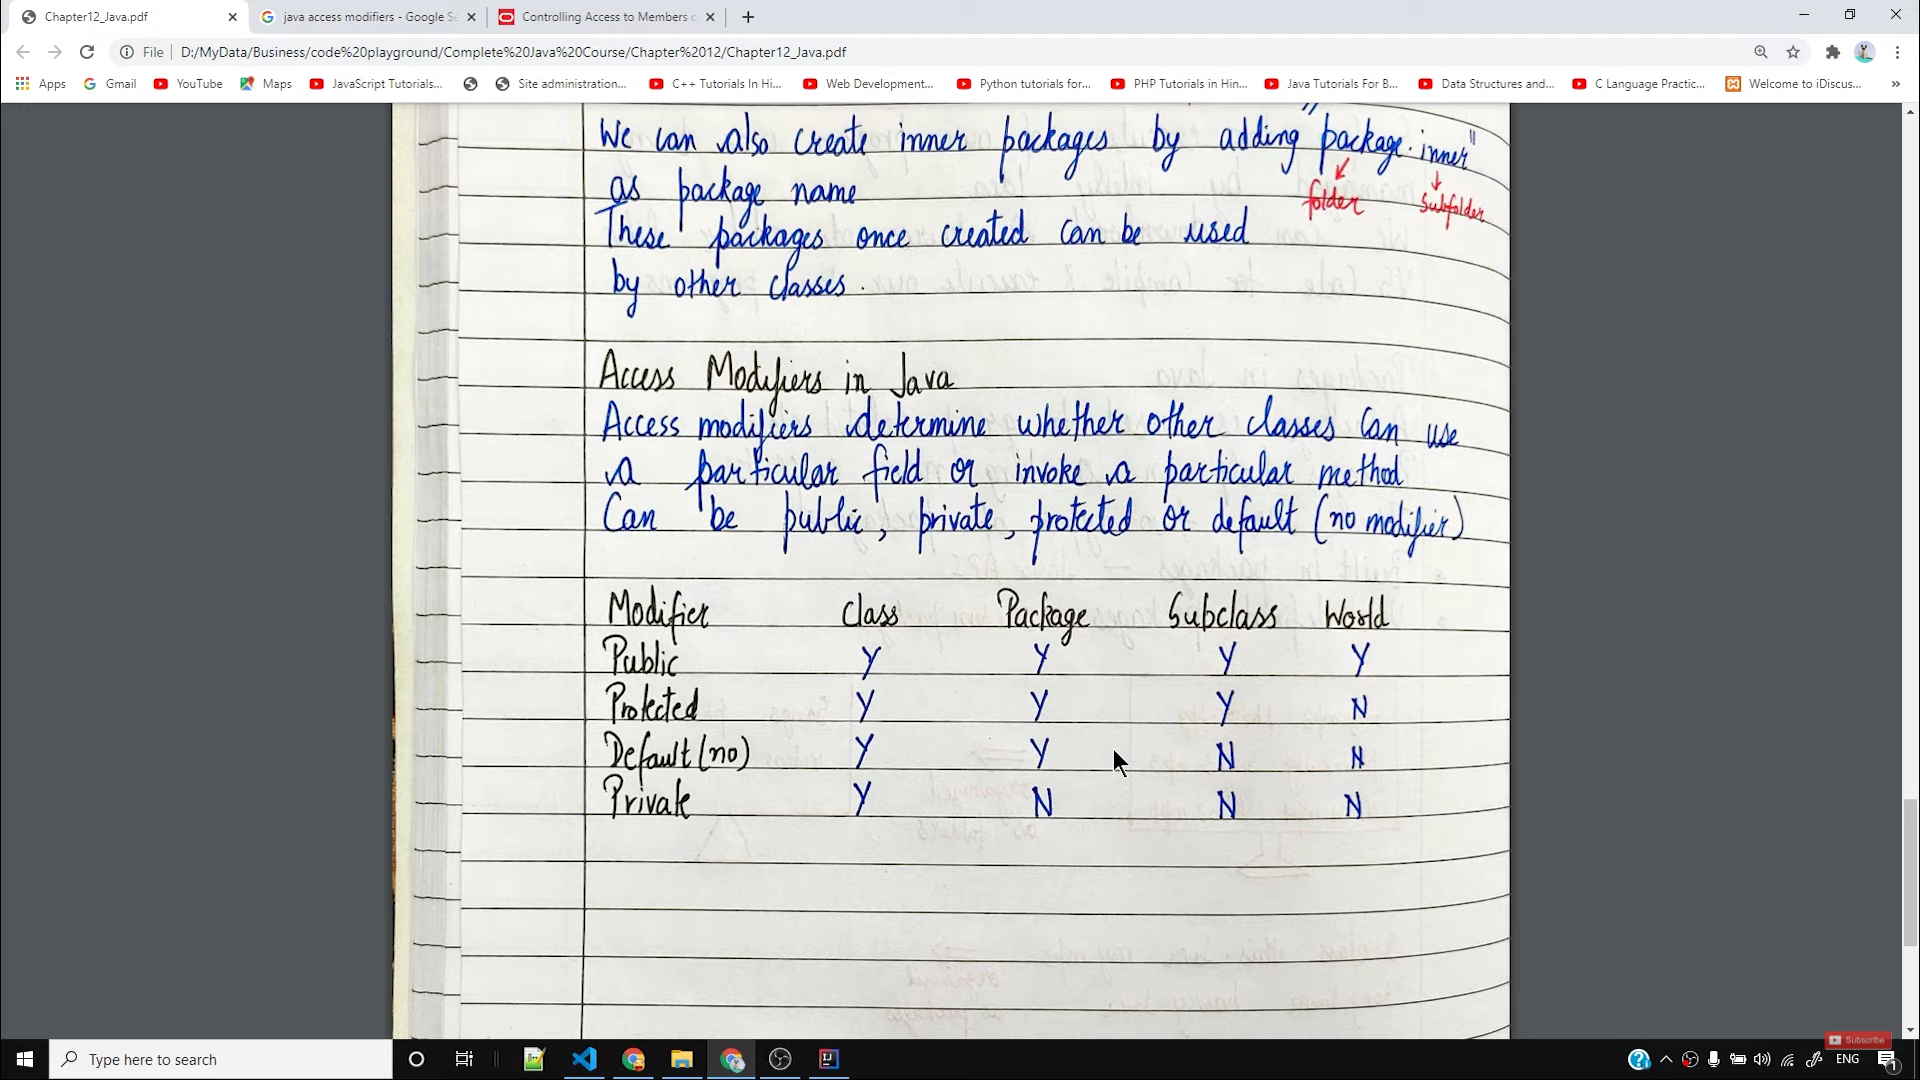 Chapter12_Java.pdf
java access modifiers - Google Se
Controlling Access to Members o
File | D:/MyData/Business/code%20playground/Complete%20Java%20Course/Chapter%2012/Chapter12_Java.pdf
Apps Gmail YouTube Maps JavaScript Tutorials... Site administration... C++ Tutorials In Hi... Web Development... Python tutorials for... PHP Tutorials in Hin... Java Tutorials For B... Data Structures and... C Language Practic... Welcome to iDiscus... »
We can also create inner packages by adding "package.inner"
folder subfolder
as package name
These packages once created can be used
by other classes.
Access Modifiers in Java
Access modifiers determine whether other classes can use
a particular field or invoke a particular method
Can be public, private, protected or default (no modifier)
Modifier Class Package Subclass World
Public Y Y Y Y
Protected Y Y Y N
Default (no) Y Y N N
Private Y N N N
Subscribe
Type here to search
ENG
1